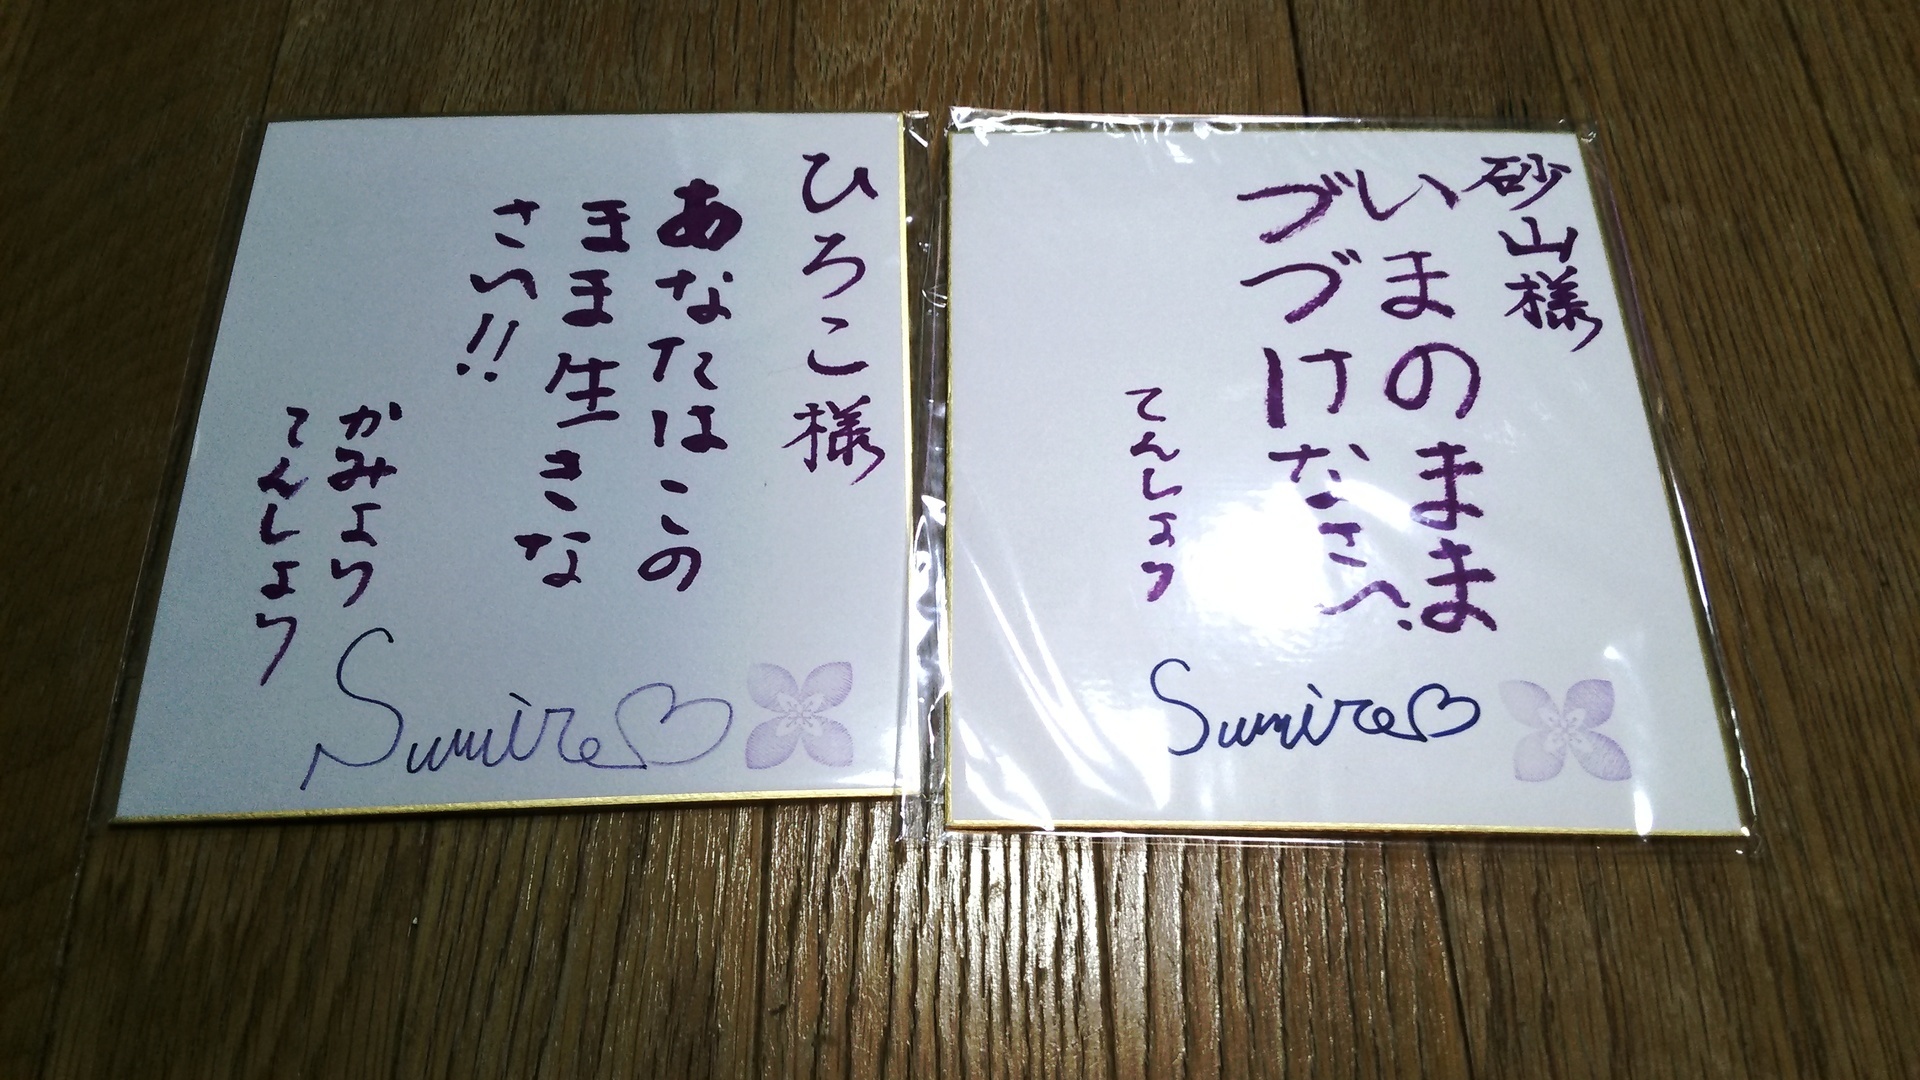 ひろこ様
あなたはこの
まま生きな
さい!!
かみより
てんしょう
Sumire♡
砂山様
いまのまま
づづけなさい.
てんしょう
Sumire♡